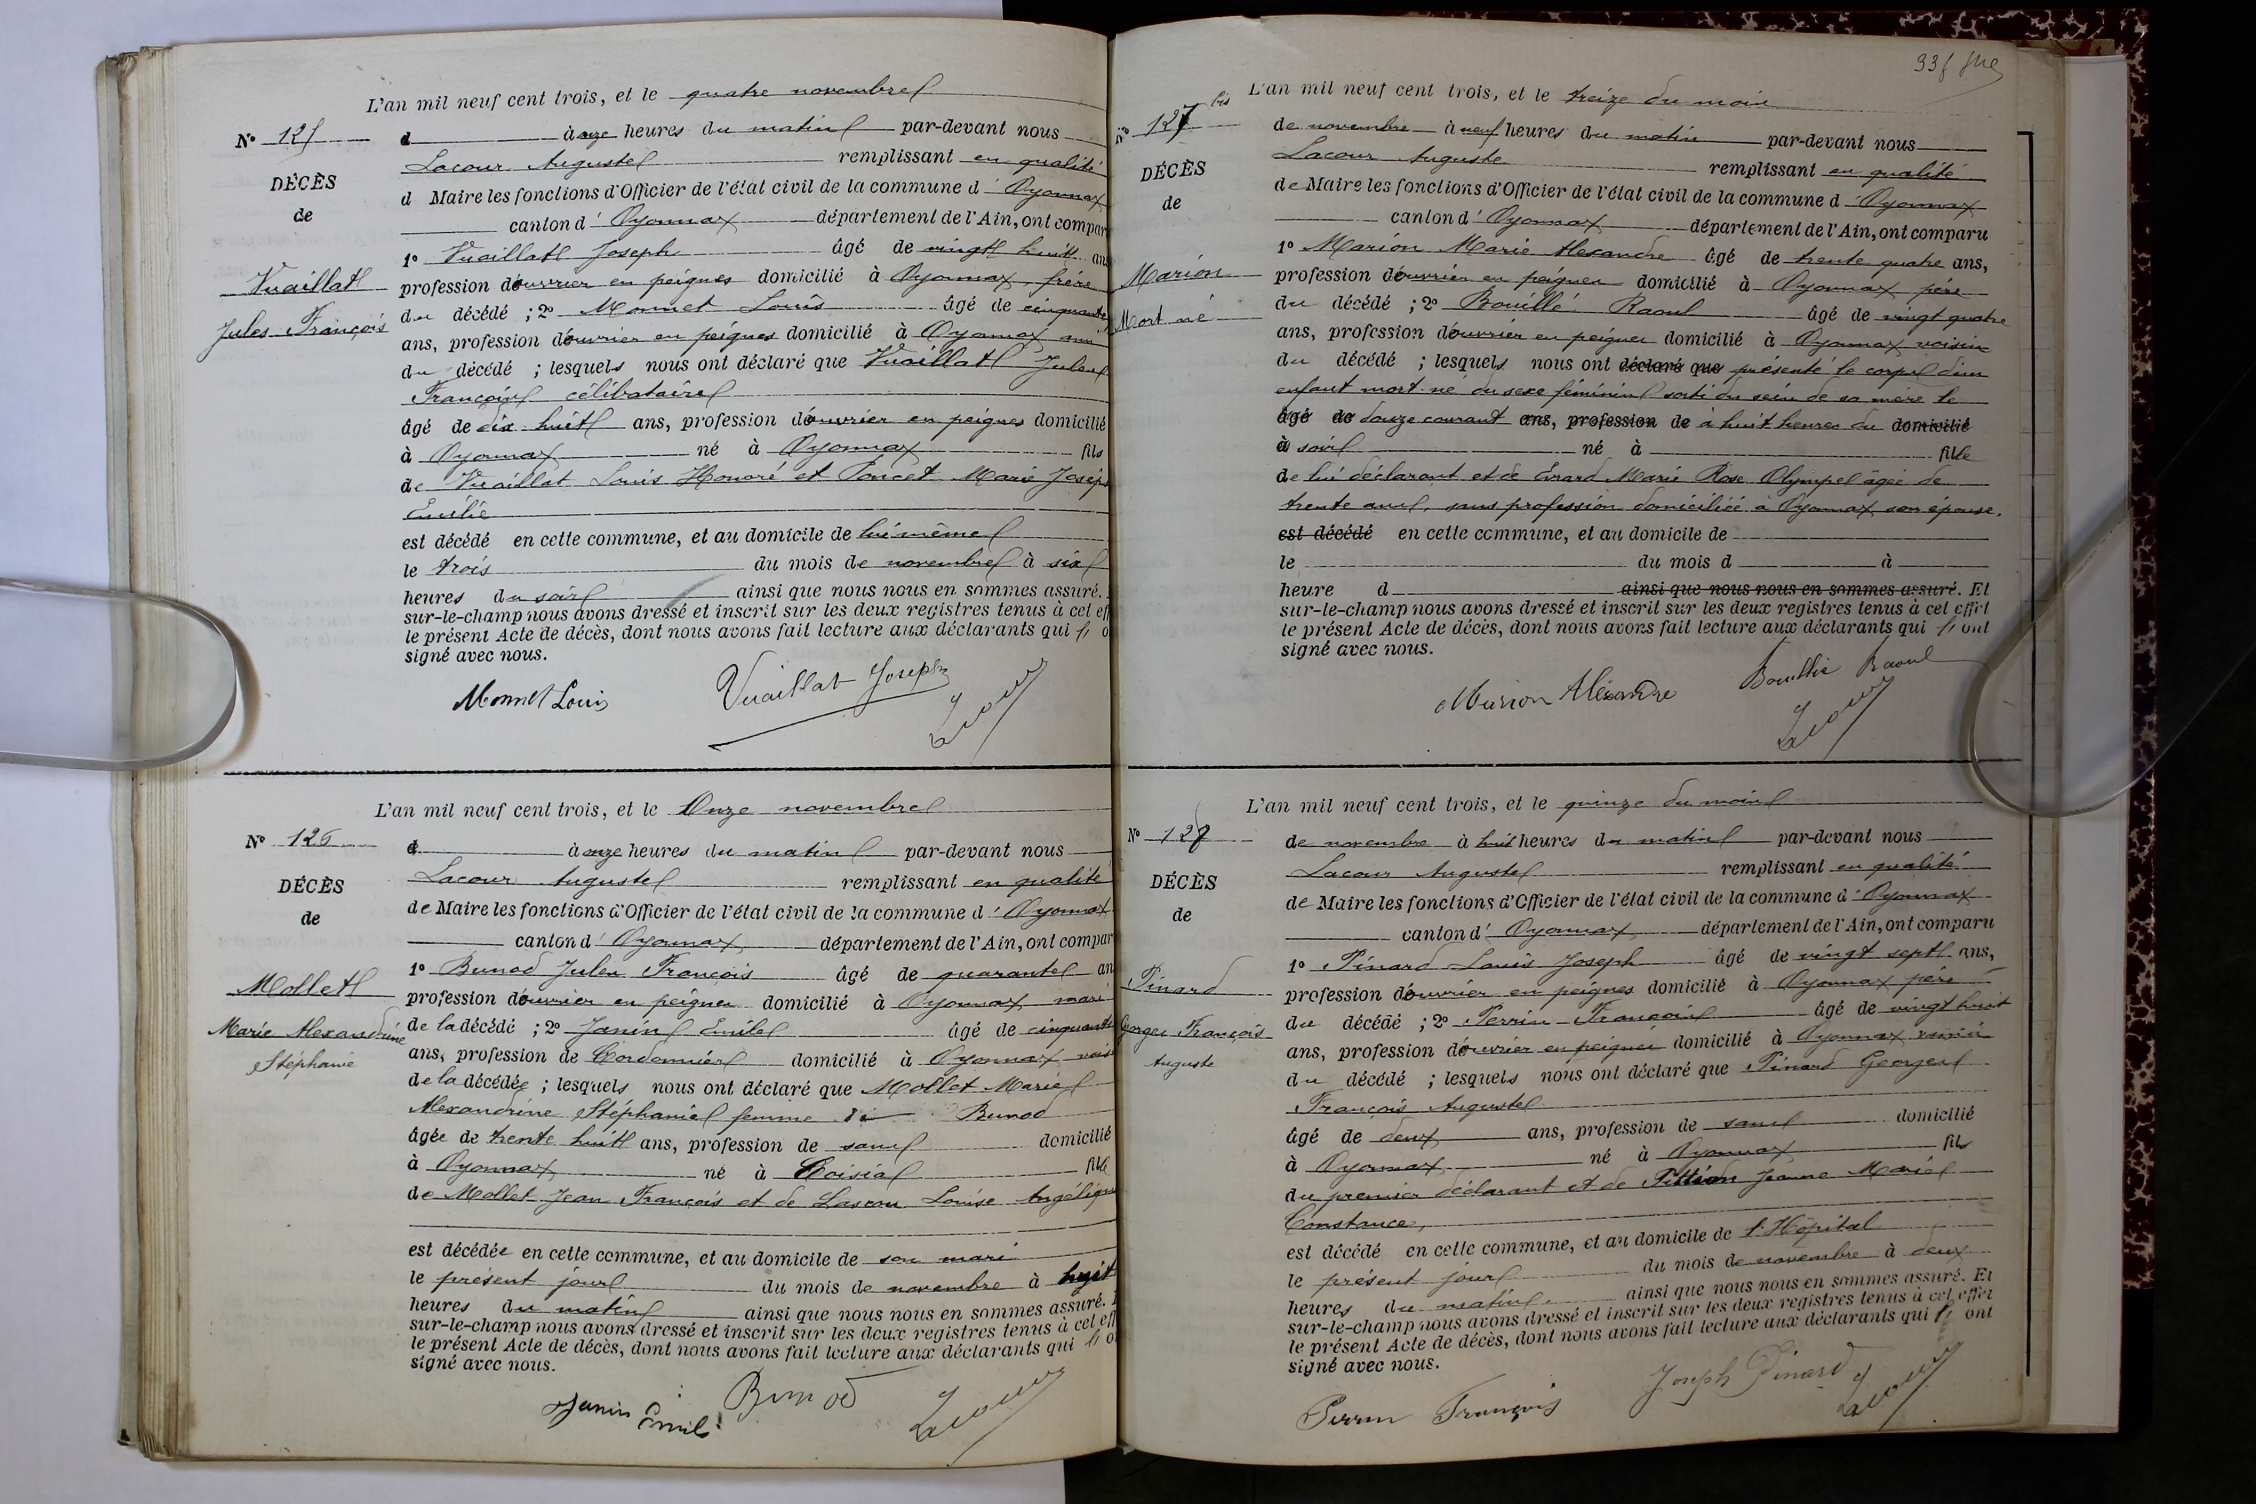 L'an mil neuf cent trois, et le quatre novembre
N° 125
d à onze heures du matin par-devant nous
DÉCÈS
Lacour Auguste remplissant en qualité
de
d Maire les fonctions d'Officier de l'état civil de la commune d' Oyonnax
canton d' Oyonnax département de l'Ain, ont compar
Vuaillat
Jules François
1° Vuaillat Joseph âgé de vingt huit ans
profession d'ouvrier en peignes domicilié à Oyonnax, frère
du décédé ; 2° Monnet Louis âgé de cinquante
ans, profession d'ouvrier en peignes domicilié à Oyonnax ami
du décédé ; lesquels nous ont déclaré que Vuaillat Jules
François célibataire
âgé de dix huit ans, profession d'ouvrier en peignes domicilié
à Oyonnax né à Oyonnax fils
de Vuaillat Louis Honoré et Poncet Marie Josèp
Emélie
est décédé en cette commune, et au domicile de lui même
le trois du mois de novembre à six
heures du soir ainsi que nous nous en sommes assuré.
sur-le-champ nous avons dressé et inscrit sur les deux registres tenus à cet eff
le présent Acte de décès, dont nous avons fait lecture aux déclarants qui o
signé avec nous.
Monnet Louis Vuaillat Joseph Lacour
L'an mil neuf cent trois, et le Onze novembre
N° 126
d à onze heures du matin par-devant nous
DÉCÈS
Lacour Auguste remplissant en qualité
de
de Maire les fonctions d'Officier de l'état civil de la commune d' Oyonnax
canton d' Oyonnax département de l'Ain, ont compar
Mollet
Marie Alexandrine
Stéphanie
1° Bunod Jules François âgé de quarante an
profession d'ouvrier en peignes domicilié à Oyonnax mari
de la décédé ; 2° Janin Emile âgé de cinquante
ans, profession de Cordonnier domicilié à Oyonnax vois
de la décédée ; lesquels nous ont déclaré que Mollet Marie
Alexandrine Stéphanie femme Bunod
âgée de trente huit ans, profession de sans domicilié
à Oyonnax né à Coisia fille
de Mollet Jean François et de Lascou Louise Angéliqu
est décédée en cette commune, et au domicile de son mari
le présent jour du mois de novembre à huit
heures du matin ainsi que nous nous en sommes assuré.
sur-le-champ nous avons dressé et inscrit sur les deux registres tenus à cet eff
le présent Acte de décès, dont nous avons fait lecture aux déclarants qui o
signé avec nous.
Janin Emile Bunod Lacour
L'an mil neuf cent trois, et le treize du mois
N° 127 bis
de novembre à neuf heures du matin par-devant nous
DÉCÈS
Lacour Auguste remplissant en qualité
de
de Maire les fonctions d'Officier de l'état civil de la commune d Oyonnax
canton d' Oyonnax département de l'Ain, ont comparu
Marion
Mort né
1° Marion Marie Alexandre âgé de trente quatre ans,
profession d'ouvrier en peignes domicilié à Oyonnax père
du décédé ; 2° Bouillé Raoul âgé de vingt quatre
ans, profession d'ouvrier en peignes domicilié à Oyonnax voisin
du décédé ; lesquels nous ont déclaré que présenté le corps d'un
enfant mort-né du sexe féminin sorti du sein de sa mère le
âgé de douze courant ans, profession de à huit heures du domicilié
à soir né à fille
de lui déclarant et de Evrard Marie Rose Olympe âgée de
trente ans, sans profession domiciliée à Oyonnax son épouse.
est décédé en cette commune, et au domicile de
le du mois d à
heure d ainsi que nous nous en sommes assuré. Et
sur-le-champ nous avons dressé et inscrit sur les deux registres tenus à cet effet
le présent Acte de décès, dont nous avons fait lecture aux déclarants qui ont
signé avec nous.
Marion Alexandre Bouillé Raoul Lacour
L'an mil neuf cent trois, et le quinze du mois
N° 127
de novembre à huit heures du matin par-devant nous
DÉCÈS
Lacour Auguste remplissant en qualité
de
de Maire les fonctions d'Officier de l'état civil de la commune d' Oyonnax
canton d' Oyonnax département de l'Ain, ont comparu
Pinard
Georges François
Auguste
1° Pinard Louis Joseph âgé de vingt sept ans,
profession d'ouvrier en peignes domicilié à Oyonnax père
du décédé ; 2° Perrin François âgé de vingt huit
ans, profession d'ouvrier en peignes domicilié à Oyonnax voisin
du décédé ; lesquels nous ont déclaré que Pinard Georges
François Auguste
âgé de deux ans, profession de sans domicilié
à Oyonnax né à Oyonnax fils
du premier déclarant et de Pittion Jeanne Marie
Constance,
est décédé en cette commune, et au domicile de l'Hôpital
le présent jour du mois de novembre à deux
heures du matin. ainsi que nous nous en sommes assuré. Et
sur-le-champ nous avons dressé et inscrit sur les deux registres tenus à cet effet
le présent Acte de décès, dont nous avons fait lecture aux déclarants qui ont
signé avec nous.
Perrin François Joseph Pinard Lacour